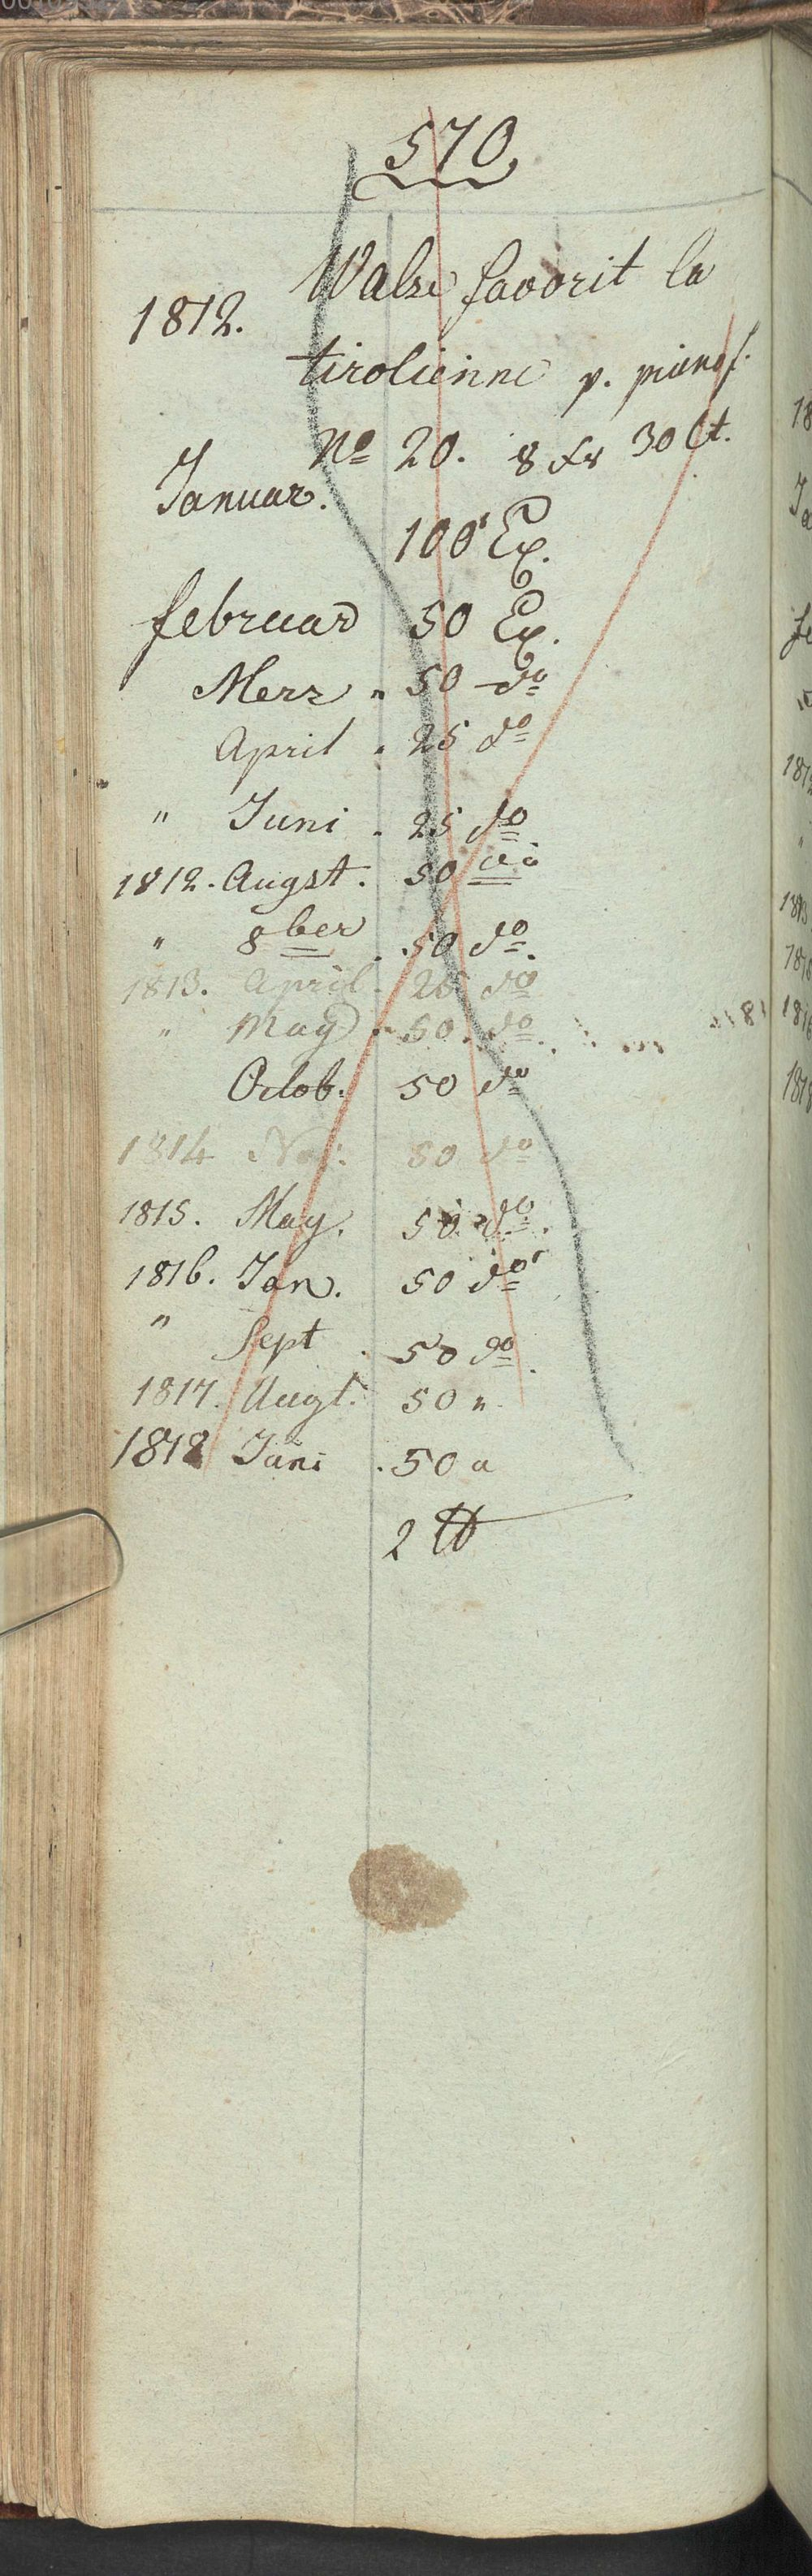 570
1812. Walse favorit la
tirolienne p. pianof.
No 20. 8 Xr 30 Ct.
Januar. 100 Ex.
februar 50 Ex.
Merz " 50 do
April . 25 do
" Juni . 25 do
1812. Augst. 50 do
" 8ber . 50 do.
1813. April . 25 do
" May . 50. do
Octob. 50 do
1814 Nov. 50 do
1815. May. 50 do.
1816. Jan. 50 do
" Sept . 50 do.
1817. Augt. 50 "
1818 Juni . 50 a
2 tt